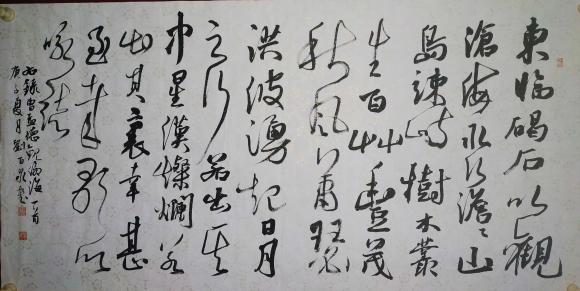 東臨碣石以觀
滄海水何澹〻山
島竦峙樹木叢
生百艸豐茂
秋風蕭瑟
洪波湧起日月
之行若出其
中星漢燦爛若
出其裏幸甚
至哉歌以
詠志
錄曹孟德觀滄海一首
庚子夏月劉百